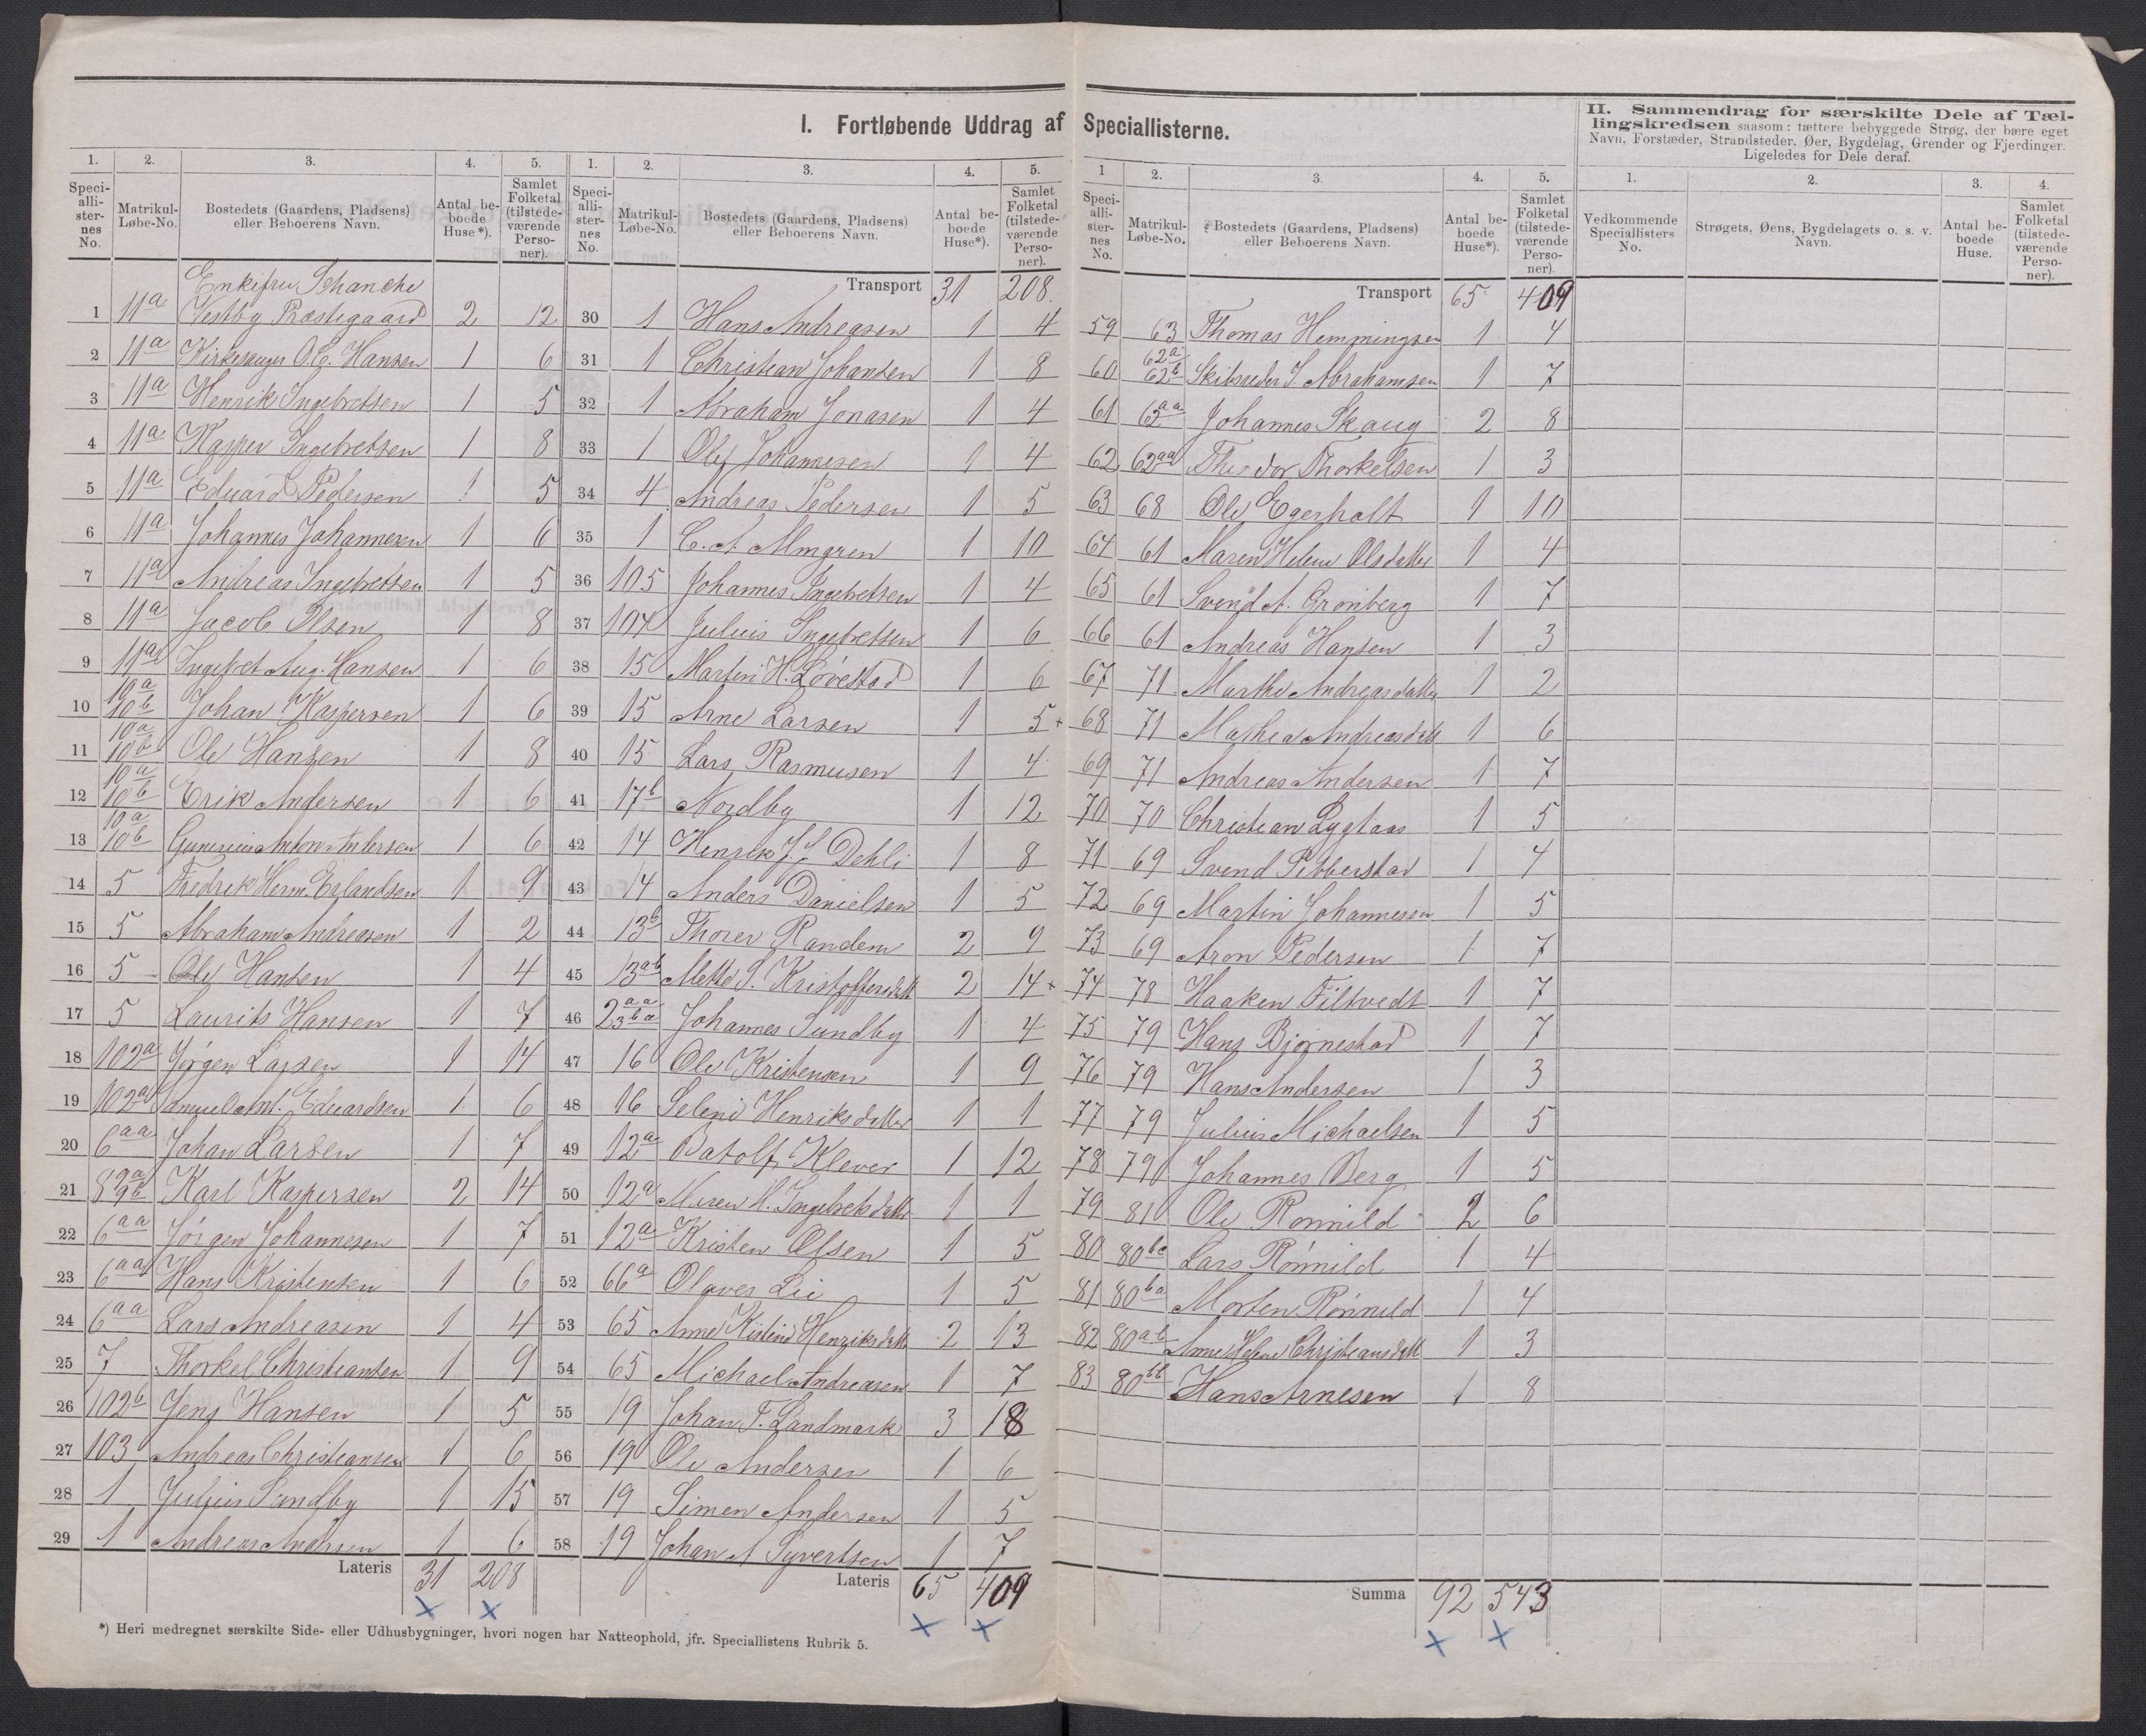 I. Fortløbende Uddrag af Speciallisterne.
II. Sammendrag for særskilte Dele af Tæl-
lingskredsen saasom: tættere bebyggede Strøg, der bære eget
Navn, Forstæder, Strandsteder, Øer, Bygdelag, Grender og Fjerdinger.
Ligeledes for Dele deraf.
1. 2. 3. 4. 5.
Speci-alli-ster-nes No. Matrikul-Løbe-No. Bostedets (Gaardens, Pladsens) eller Beboerens Navn. Antal be-boede Huse*). Samlet Folketal (tilstede-værende Perso-ner).
Enkefru Schanche
1 11a Vestby Præstegaard 2 12
2 11a Kirkesanger O.C. Hansen 1 6
3 11a Henrik Ingebretsen 1 5
4 11a Kasper Ingebretsen 1 8
5 11a Eduard Pedersen 1 5
6 11a Johannes Johannesen 1 6
7 11a Andreas Ingebretsen 1 5
8 11a Jacob Olsen 1 8
9 11a Ingebret Aug. Hansen 1 6
10 10a 10b Johan Kaspersen 1 6
11 10a 10b Ole Hansen 1 8
12 10a 10b Erik Andersen 1 6
13 10a 10b Gunerius Anton Andersen 1 6
14 5 Fredrik Herm. Erlandsen 1 9
15 5 Abraham Andreasen 1 2
16 5 Ole Hansen 1 4
17 5 Laurits Hansen 1 7
18 102a Jørgen Larsen 1 14
19 102a Samuel Ant. Eduardsen 1 6
20 6aa Johan Larsen 1 7
21 8 9a 9b Karl Kaspersen 2 14
22 6aa Jørgen Johannesen 1 7
23 6aa Hans Kristensen 1 6
24 6aa Lars Andreasen 1 4
25 7 Thorkel Christiansen 1 9
26 102b Jens Hansen 1 5
27 103 Andreas Christiansen 1 6
28 1 Julius Sundby 1 15
29 1 Andreas Andersen 1 6
Lateris 31 208
*) Heri medregnet særskilte Side- eller Udhusbygninger, hvori nogen har Natteophold, jfr. Speciallistens Rubrik 5.
1. 2. 3. 4. 5.
Speci-alli-ster-nes No. Matrikul-Løbe-No. Bostedets (Gaardens, Pladsens) eller Beboerens Navn. Antal be-boede Huse*). Samlet Folketal (tilstede-værende Perso-ner).
Transport 31 208.
30 1 Hans Andreasen 1 4
31 1 Christian Johansen 1 8
32 1 Abraham Jonasen 1 4
33 1 Ole Johannesen 1 4
34 4 Andreas Pedersen 1 5
35 1 C. A. Almgren 1 10
36 105 Johannes Ingebretsen 1 4
37 104 Julius Ingebretsen 1 6
38 15 Martin H. Løvestad 1 6
39 15 Arne Larsen 1 5 +
40 15 Lars Rasmusen 1 4
41 17b Nordby 1 12
42 14 Henrik J. Dehli 1 8
43 14 Anders Danielsen 1 5
44 13b Thorer Randem 2 9
45 13ab Mette S. Kristoffersdatt 2 14 +
46 2aa 3ba Johannes Sundby 1 4
47 16 Ole Kristensen 1 9
48 16 Seleni Henriksdatter 1 1
49 12a Batolf Klever 1 12
50 12a Maren H. Ingebretsdatt 1 1
51 12a Kristen Olsen 1 5
52 66a Olaves Lie 1 5
53 65 Anne Kistine Henriksdatt 2 13
54 65 Michael Andreasen 1 7
55 19 Johan P. Landmark 3 18
56 19 Ole Andersen 1 6
57 19 Simen Andersen 1 5
58 19 Johan A Syvertsen 1 7
Lateris 65 409
1 2. 3. 4. 5.
Speci-alli-ster-nes No. Matrikul-Løbe-No. Bostedets (Gaardens, Pladsens) eller Beboerens Navn. Antal be-boede Huse*). Samlet Folketal (tilstede-værende Perso-ner).
Transport 65 409
59 63 Thomas Hemmingsen 1 4
60 62a 62b Skibsreder S. Abrahamsen 1 7
61 62aa Johannes Skaug 2 8
62 62aa Theodor Thorkelsen 1 3
63 68 Ole Egerholt 1 10
64 61 Maren Helene Olsdatter 1 4
65 61 Svend A. Grønberg 1 7
66 61 Andreas Hansen 1 3
67 71 Marthe Andreasdatter 1 2
68 71 Mathea Andreasdatt 1 6
69 71 Andreas Andersen 1 7
70 70 Christian Lygtaas 1 5
71 69 Svend Pibberstad 1 4
72 69 Martin Johannesen 1 5
73 69 Aron Pedersen 1 7
74 78 Haaken Filtvedt 1 7
75 79 Hans Bjørnestad 1 7
76 79 Hans Andersen 1 3
77 79 Julius Michaelsen 1 5
78 79 Johannes Berg 1 5
79 81 Ole Rønnild 2 6
80 80bc Lars Rønnild 1 4
81 80ba Morten Rønnild 1 4
82 80ab Anne Helene Christiansdatt 1 3
83 80bb Hans Arnesen 1 8
Summa 92 543
1. 2. 3. 4.
Vedkommende Speciallisters No. Strøgets, Øens, Bygdelagets o. s. v. Navn. Antal be-boede Huse. Samlet Folketal (tilstede-værende Perso-ner).